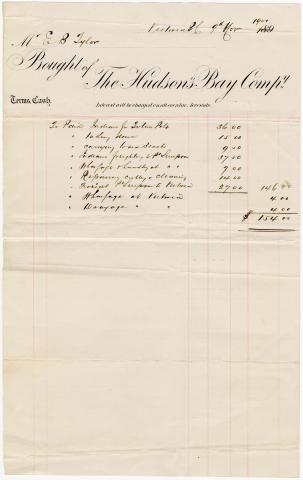 Victoria BC 9th Nov 1900
Mr E B Tylor
Bought of The Hudson's Bay Compy.
Terms Cash. Interest will be charged on all overdue Accounts.
To Paid Indians for Totem Pole 36 00
" taking down 15 00
" carrying to Beach 9 50
" Indians freighting to Pt Simpson 37 50
" Wharfage & handling at " " 7 00
" Repairing & cleaning 14 00
" Freight Pt Simpson to Victoria 27 00 146 00
" Wharfage at Victoria 4 00
" " " 4 00
$ 154.00